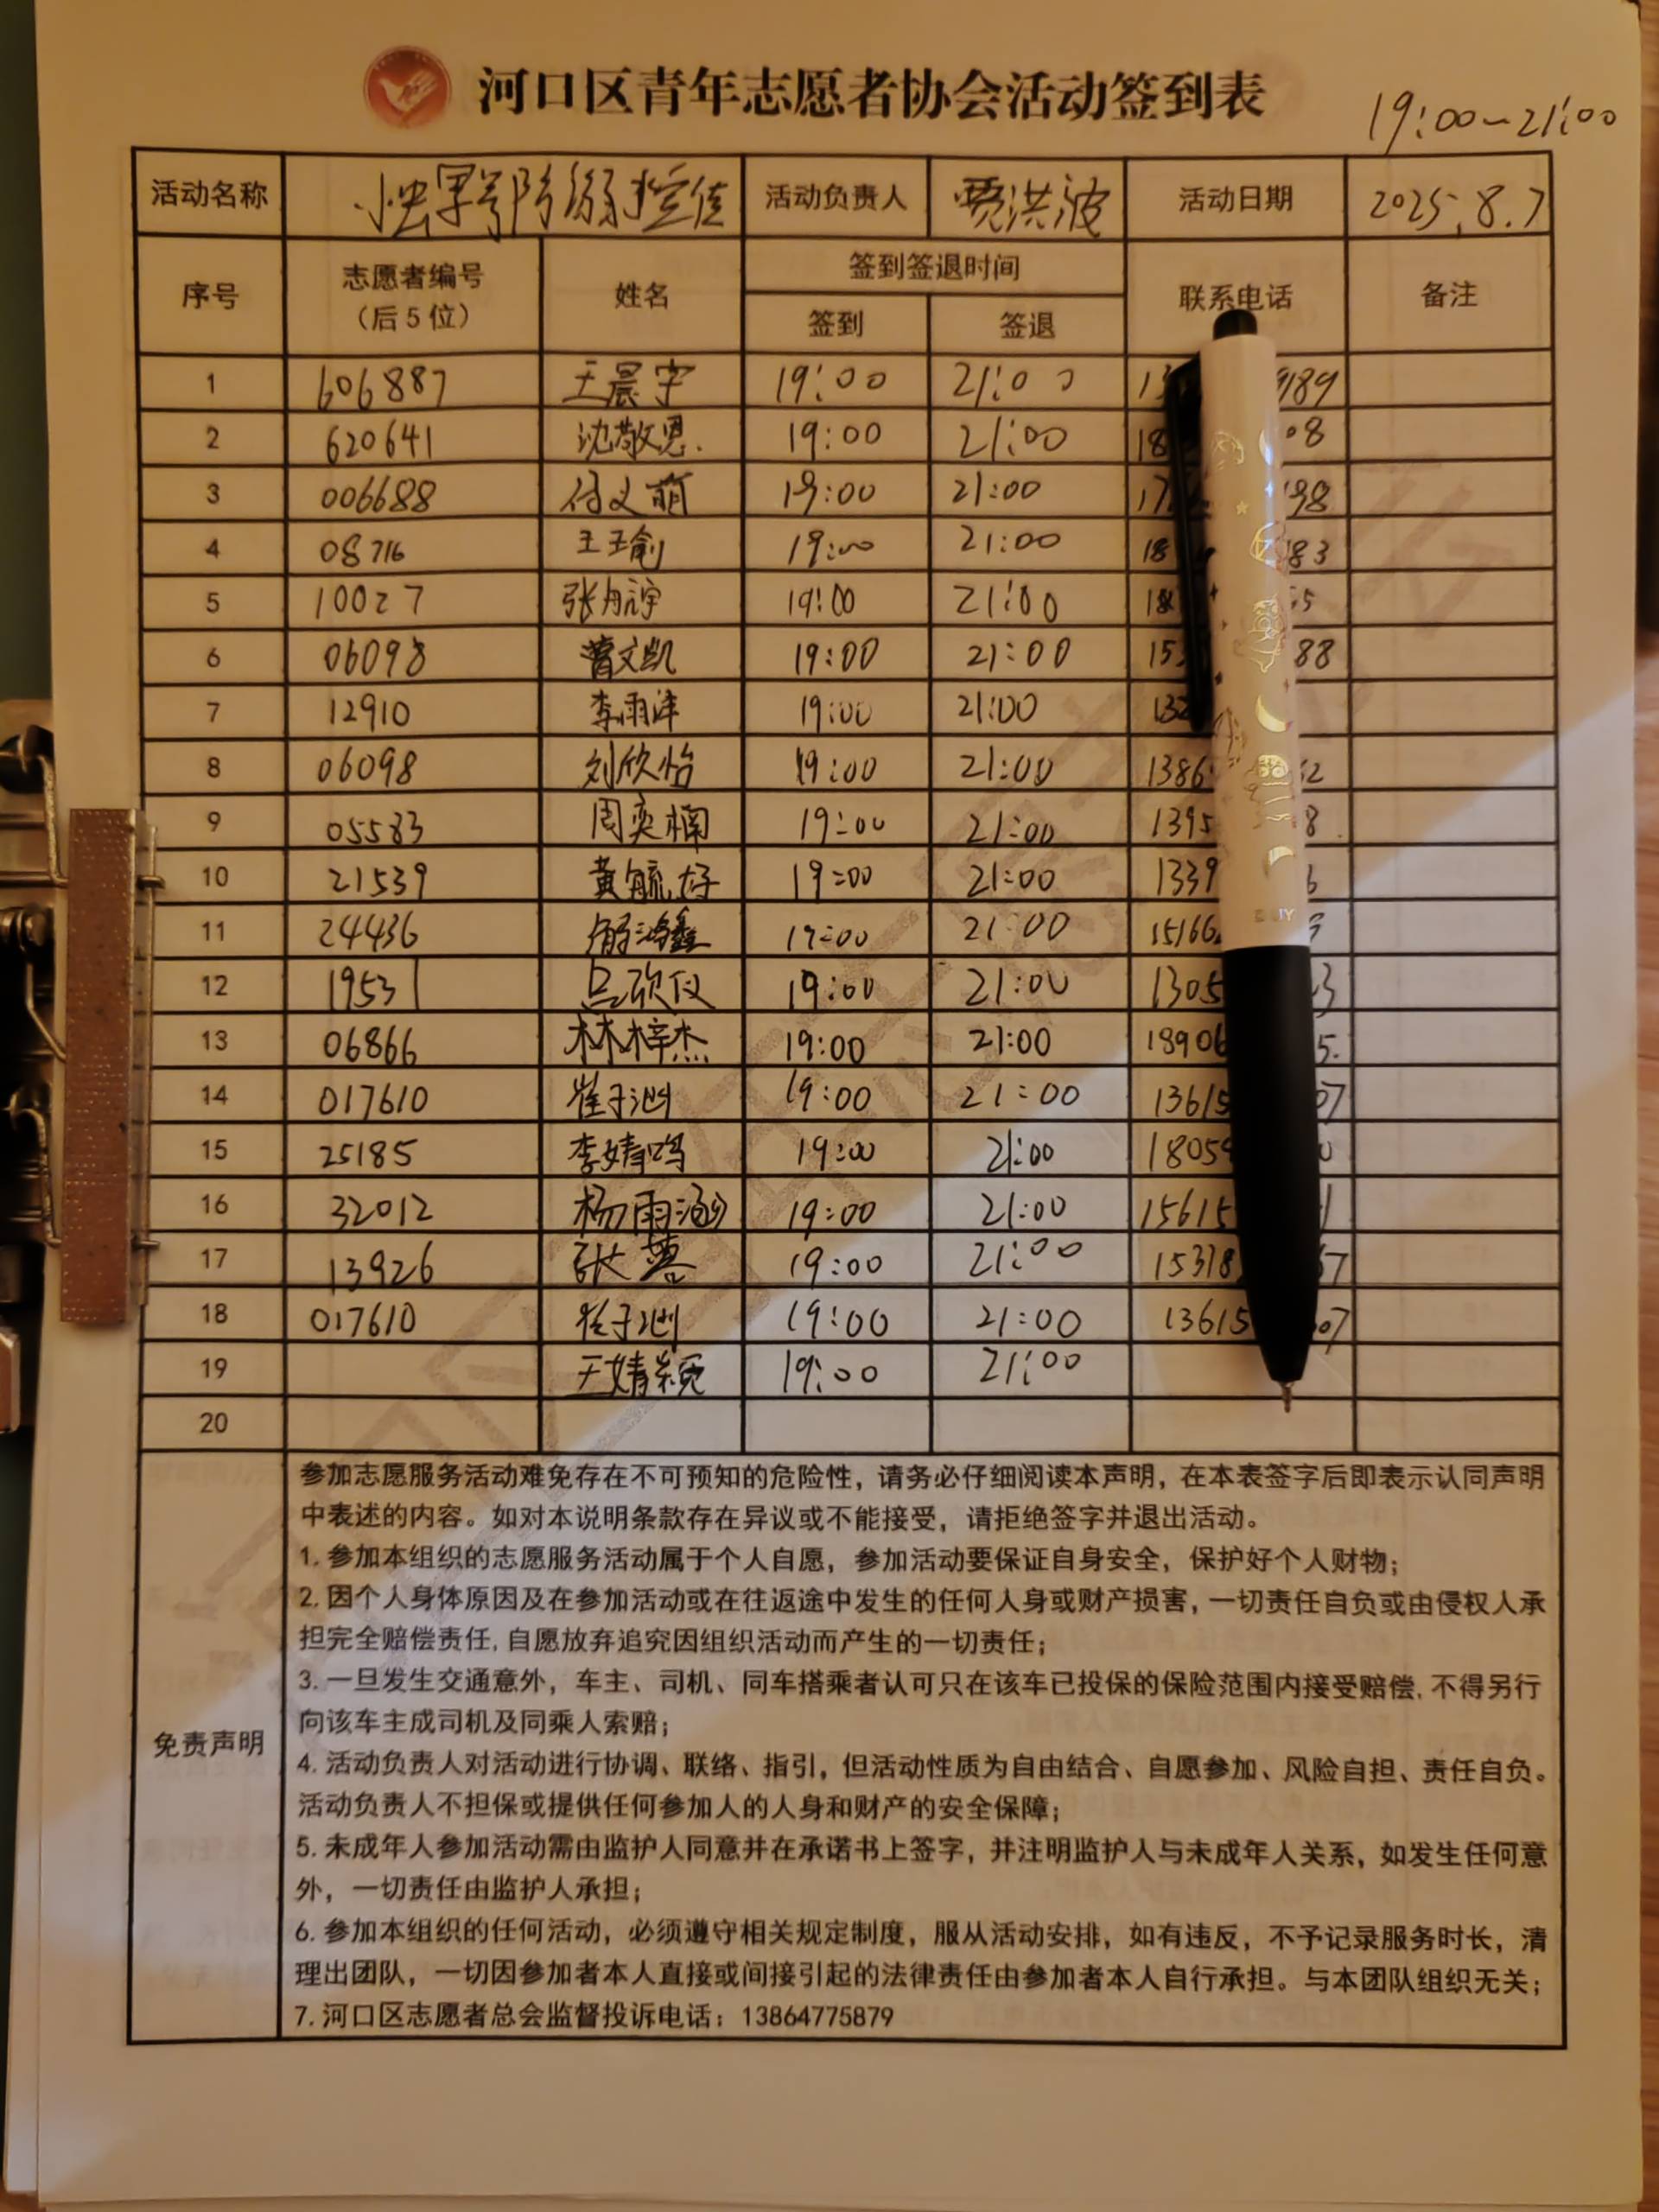 河口区青年志愿者协会活动签到表
19:00~21:00
活动名称 活动负责人 贾洪波 活动日期 2025.8.7
序号 志愿者编号（后5位） 姓名 签到签退时间 联系电话 备注
签到 签退
1 606887 王晨宇 19:00 21:00 189
2 620641 沈敬恩 19:00 21:00 18 08
3 006688 付文萌 19:00 21:00 17 98
4 08716 王玉俞 19:00 21:00 18 83
5 10027 19:00 21:00 18 5
6 06098 曹文凯 19:00 21:00 15 88
7 12910 李雨洋 19:00 21:00 132
8 06098 刘欣怡 19:00 21:00 1386 2
9 05583 周奕楠 19:00 21:00 1395 8
10 21539 黄毓好 19:00 21:00 1339
11 24436 19:00 21:00 15166
12 19531 吕欣仪 19:00 21:00 1305 3
13 06866 林梓杰 19:00 21:00 18906 5.
14 017610 19:00 21:00 13615 07
15 25185 李婧鸣 19:00 21:00 1805
16 32012 杨雨涵 19:00 21:00 15615 1
17 13926 19:00 21:00 15318 67
18 017610 19:00 21:00 13615 07
19 19:00 21:00
20
免责声明
参加志愿服务活动难免存在不可预知的危险性，请务必仔细阅读本声明，在本表签字后即表示认同声明
中表述的内容。如对本说明条款存在异议或不能接受，请拒绝签字并退出活动。
1. 参加本组织的志愿服务活动属于个人自愿，参加活动要保证自身安全，保护好个人财物；
2. 因个人身体原因及在参加活动或在往返途中发生的任何人身或财产损害，一切责任自负或由侵权人承
担完全赔偿责任，自愿放弃追究因组织活动而产生的一切责任；
3. 一旦发生交通意外，车主、司机、同车搭乘者认可只在该车已投保的保险范围内接受赔偿，不得另行
向该车主成司机及同乘人索赔；
4. 活动负责人对活动进行协调、联络、指引，但活动性质为自由结合、自愿参加、风险自担、责任自负。
活动负责人不担保或提供任何参加人的人身和财产的安全保障；
5. 未成年人参加活动需由监护人同意并在承诺书上签字，并注明监护人与未成年人关系，如发生任何意
外，一切责任由监护人承担；
6. 参加本组织的任何活动，必须遵守相关规定制度，服从活动安排，如有违反，不予记录服务时长，清
理出团队，一切因参加者本人直接或间接引起的法律责任由参加者本人自行承担。与本团队组织无关；
7. 河口区志愿者总会监督投诉电话：13864775879